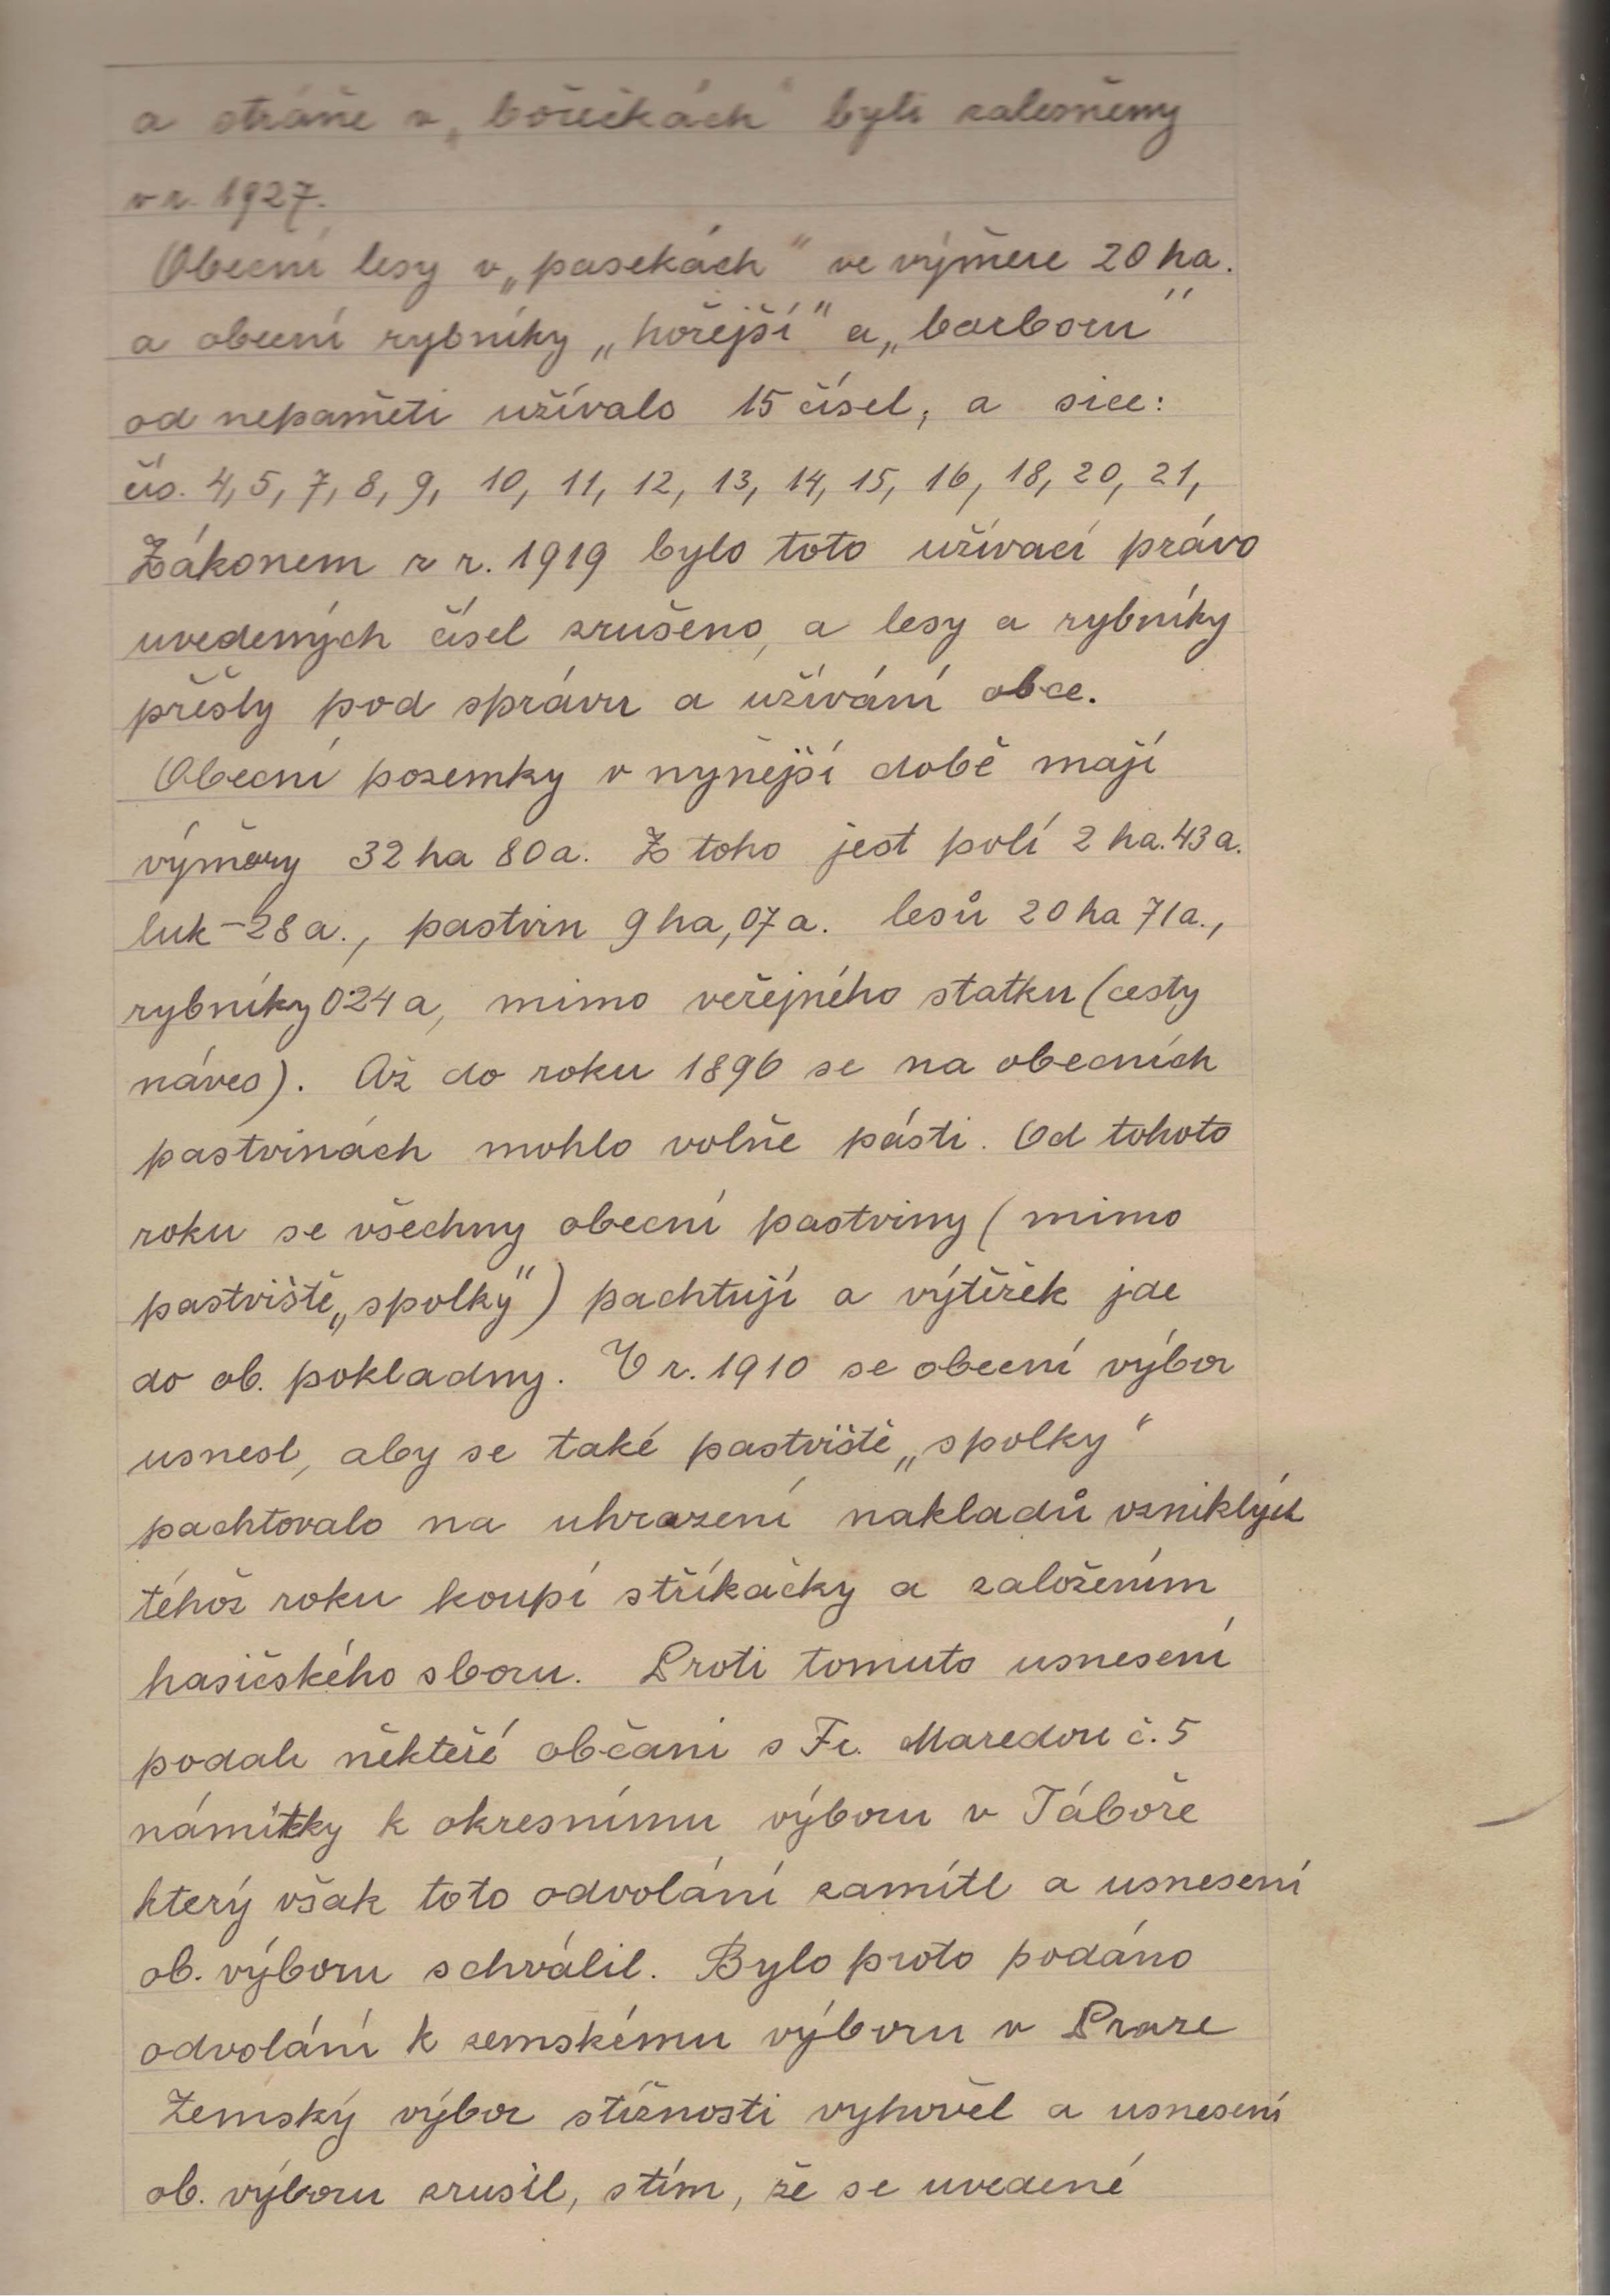 a stráně v „bořečkách“ byli zalesněny
v r. 1927.
Obecní lesy v „pasekách“ ve výměře 20 ha.
a obecní rybníky „hořejší“ a „barboru“
od nepaměti užívalo 15 čísel, a sice:
čís. 4, 5, 7, 8, 9, 10, 11, 12, 13, 14, 15, 16, 18, 20, 21,
Zákonem z r. 1919 bylo toto užívací právo
uvedených čísel zrušeno, a lesy a rybníky
přešly pod správu a užívání obce.
Obecní pozemky v nynější době mají
výměry 32 ha 80 a. Z toho jest polí 2 ha. 43 a.
luk – 28 a., pastvin 9 ha, 07 a. lesů 20 ha 71 a.,
rybníky 0·24 a, mimo veřejného statku (cesty
náves). Až do roku 1896 se na obecních
pastvinách mohlo volně pásti. Od tohoto
roku se všechny obecní pastviny (mimo
pastviště „spolky“) pachtují a výtěžek jde
do ob. pokladny. V r. 1910 se obecní výbor
usnesl, aby se také pastviště „spolky“
pachtovalo na uhrazení nakladů vzniklých
téhož roku koupí stříkačky a založením
hasičského sboru. Proti tomuto usnesení
podali někteří občani s Fr. Maredou č. 5
námitky k okresnímu výboru v Táboře
který však toto odvolání zamítl a usnesení
ob. výboru schválil. Bylo proto podáno
odvolání k zemskému výboru v Praze
Zemský výbor stížnosti vyhověl a usnesení
ob. výboru zrušil, stím, že se uvedené